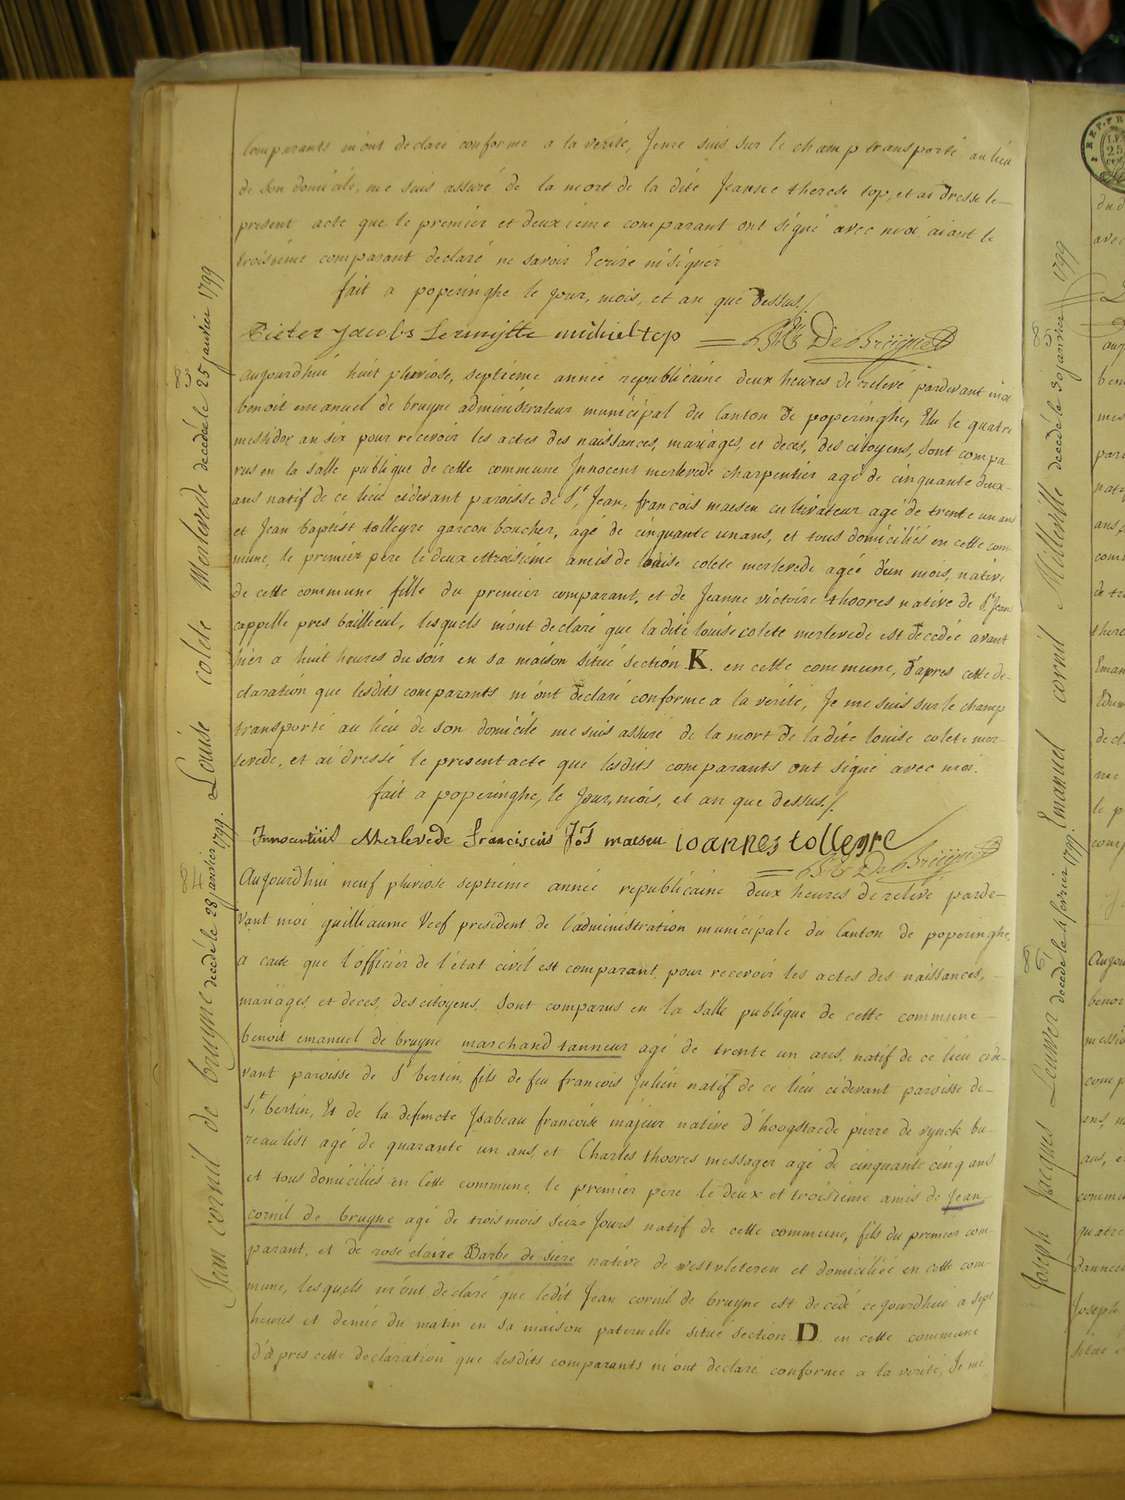 comparants m'ont declaré conforme a la verité, Je me suis sur le champ transporté au lieu
de son domicile, me suis assuré de la mort de la dite Jeanne therese top, et ai dressé le
present acte que le premier et deuxieme comparant ont signé avec moi, aiant le
troisieme comparant declaré ne savoir Ecrire ni signer
fait a poperinghe le Jour, mois, et an que dessus./.
Pieter Jacobs Lermytte michiel top De Bruÿne
83
Louise colete Merlevede decedé le 25 janvier 1799
aujourd'hui huit pluviose, septieme année republicaine deux heures de relevé pardevant moi
benoit emanuel de bruyne administrateur municipal du Canton de poperinghe, Elu le quatre
messidor an six pour recevoir les actes des naissances, mariages, et deces, des citoyens, sont compa
rus en la salle publique de cette commune Innocent merlevede charpentier agé de cinquante deux
ans natif de ce lieu cidevant paroisse de St. Jean, francois maeseu cultivateur agé de trente un ans
et Jean baptist tolleyre garcon boucher, agé de cinquante un ans, et tous domiciliés en cette com
mune, le premier pere le deux et troisieme amis de louise colete merlevede agée d'un mois, native
de cette commune fille du premier comparant, et de Jeanne victoire thoores native de St. Jean
cappelle pres baillieul, lesquels m'ont declaré que la dite louise colete merlevede est decedée avant
hier a huit heures du soir en sa maison situé section K. en cette commune, d'apres cette de-
claration que lesdits comparants m'ont declaré conforme a la verité, Je me suis sur le champ
transporté au lieu de son domicile me suis assuré de la mort de la dite louise colete mer
levede, et ai dressé le present acte que lesdits comparants ont signé avec moi.
fait a poperinghe, le Jour, mois, et an que dessus./.
Innocentius Merlevede franciscus maeseu ioannes tolleyre
De Bruÿne
84
Jean cornil de bruyne decedé le 28 janvier 1799.
Aujourd'hui neuf pluviose septieme année republicaine deux heures de relevé parde-
vant moi guilliaume Veef president de l'administration municipale du Canton de poperinghe,
a cause que l'officier de l'état civil est comparant, pour recevoir les actes des naissances,
mariages, et deces, des citoyens, sont comparus en la salle publique de cette commune
benoit emanuel de bruyne marchand tanneur agé de trente un ans, natif de ce lieu cide-
vant paroisse de St bertin, fils de feu francois Julien natif de ce lieu cidevant paroisse de
St. bertin, Et de la defuncte Isabeau francoise majeur native d'hoogstaede pierre de rynck bu-
reaulist agé de quarante un ans, et Charles thoores messager agé de cinquante cinq ans
et tous domiciliés en cette commune, le premier pere le deux et troisieme amis de Jean
cornil de bruyne agé de trois mois seize Jours natif de cette commune, fils du premier com-
parant, et de rose claire Barbe de siere native de westvleteren et domiciliée en cette com-
mune, lesquels m'ont declaré que ledit Jean cornil de bruyne est decedé cejourdhui a sept
heures et demie du matin en sa maison paternelle situé section D. en cette commune
d'apres cette declaration que lesdits comparants m'ont declaré conforme a la verité, Je me
85
Emanuel cornil Milleville decedé le 30 janvier 1799
86
Joseph Jacques Leuwer decedé le fevrier 1799.